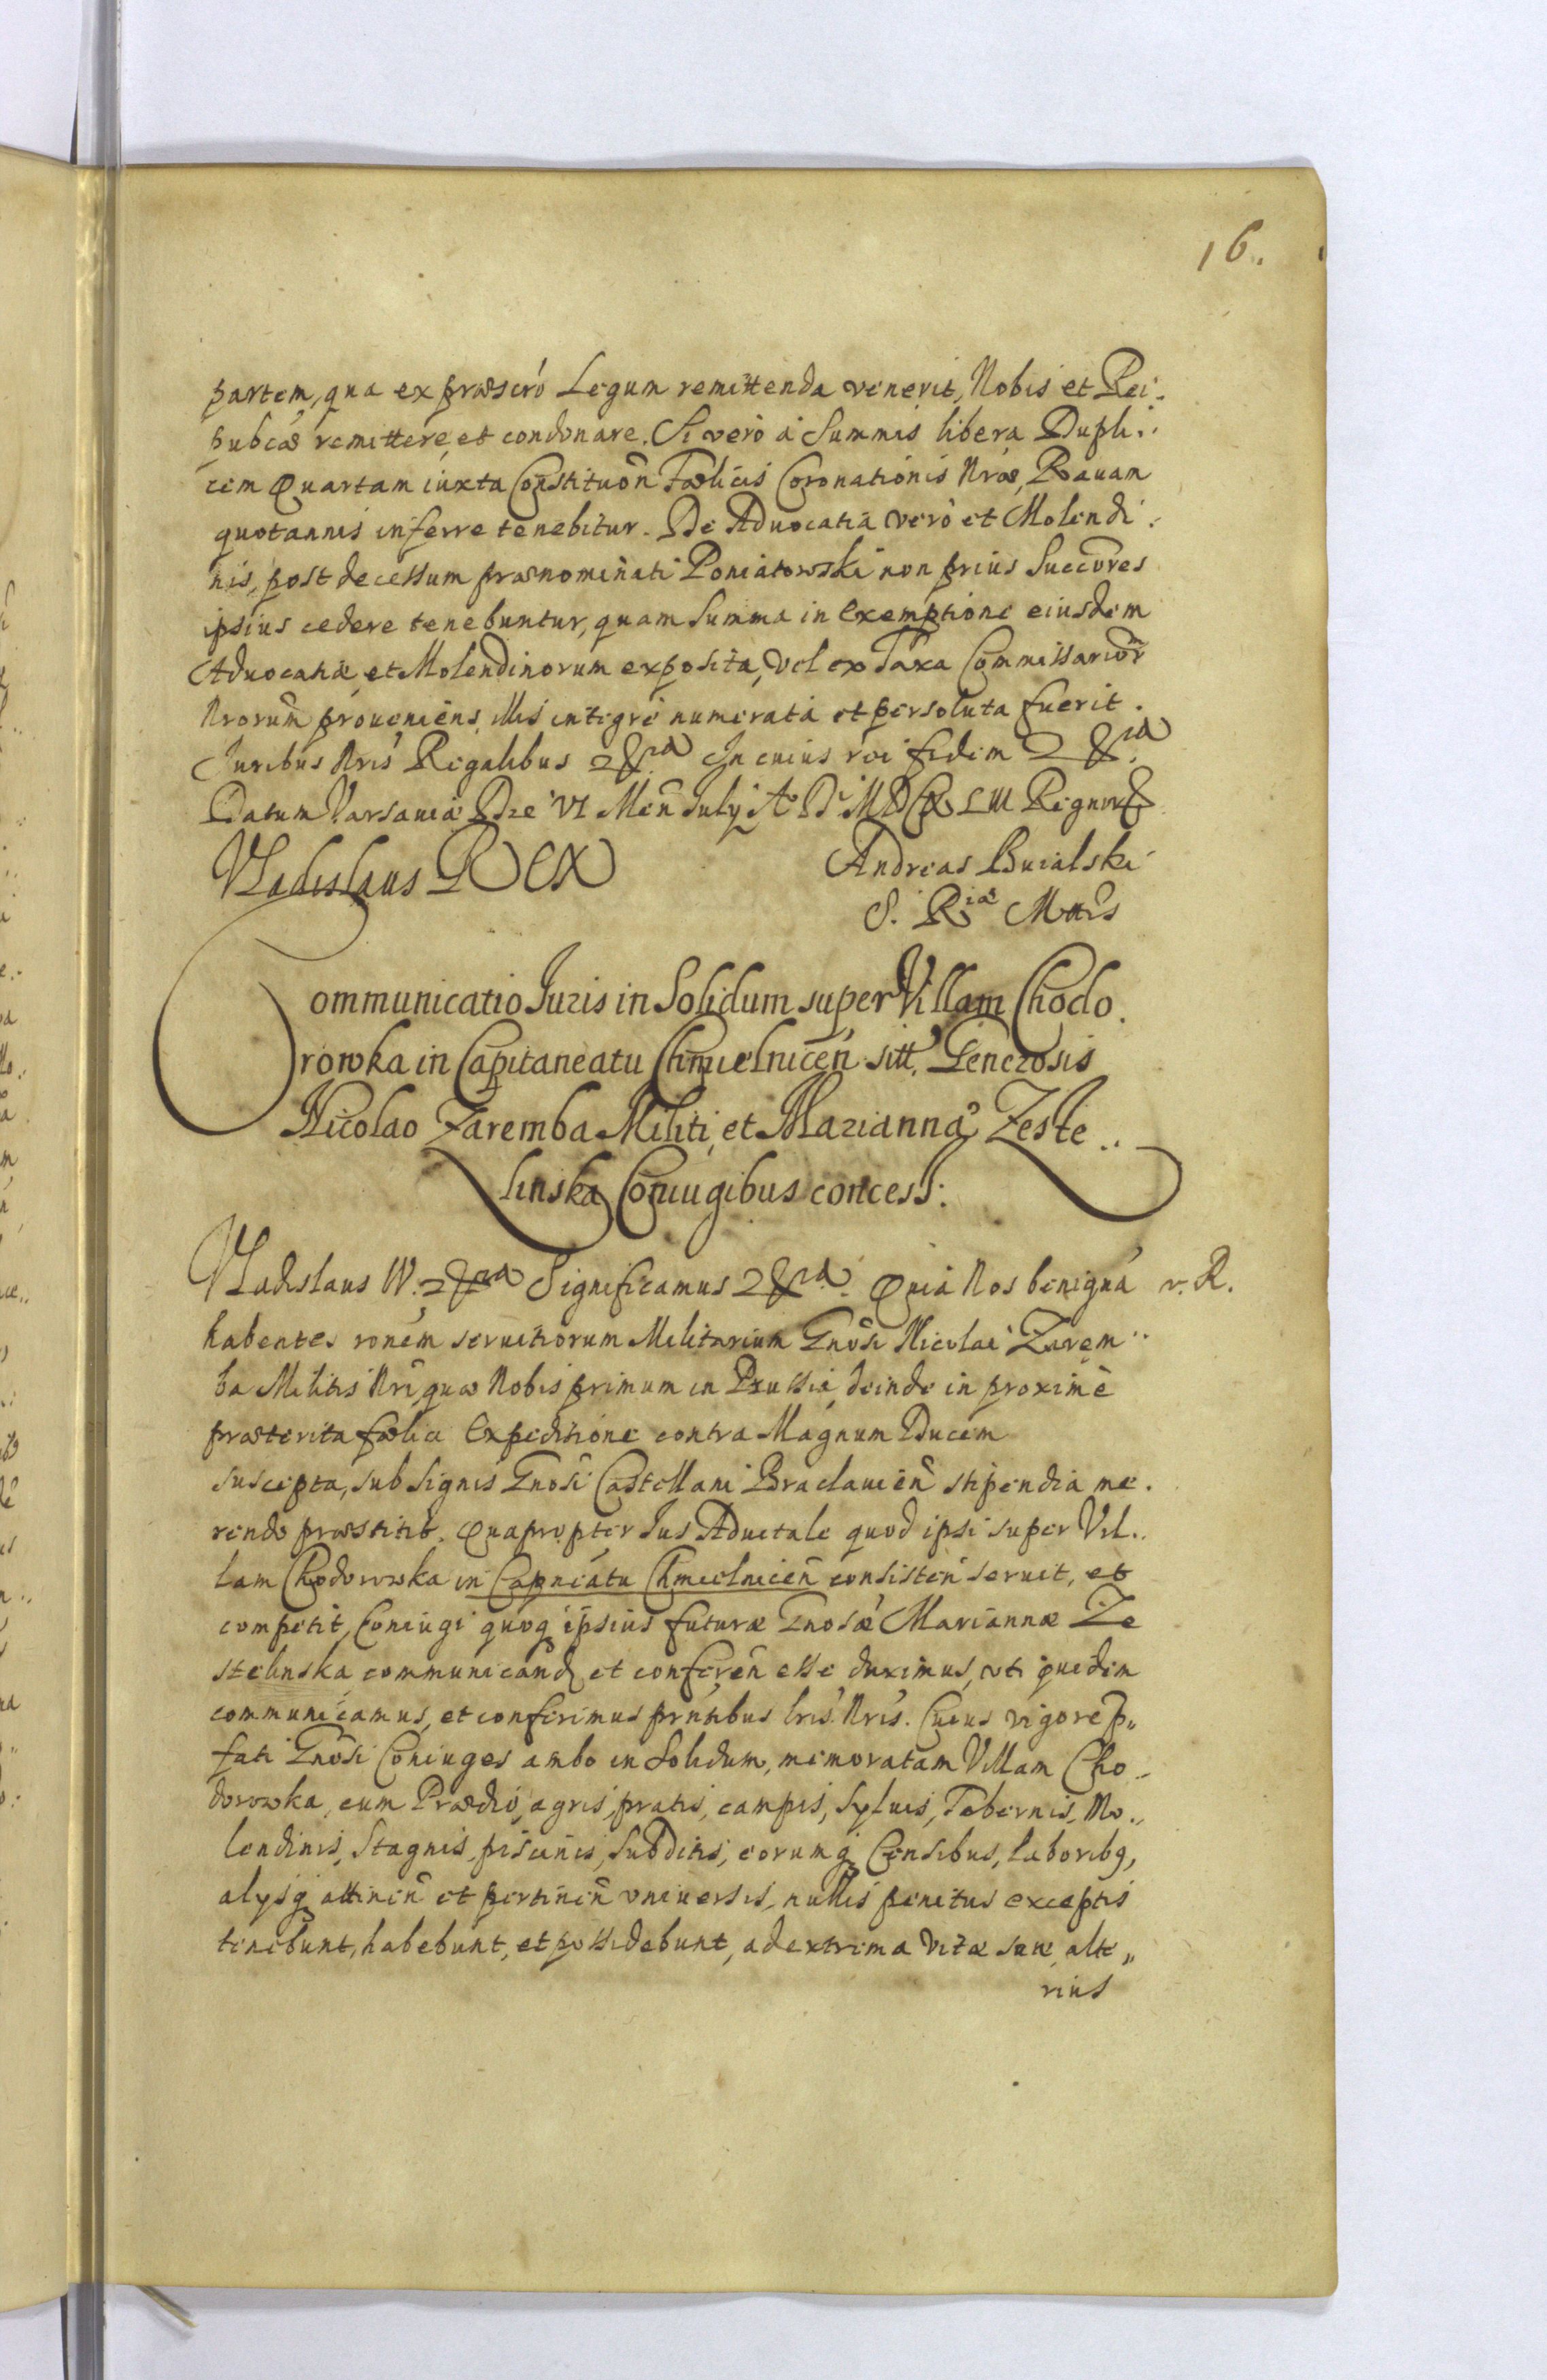 16.
partem, qua ex præscro Legum remittenda venerit, Nobis et Rei.
pubcæ remittere, et condonare. Si vero à Summis libera Dupli..
cem Quartam iuxta Constituon Fœlicis Coronationis Nræ, Rauam
quotannis inferre tenebitur. De Aduocatia vero et Molendi.
nis, post decessum prænominati Poniatowski non prius Succores
ipsius cedere tenebuntur, quam Summa in Exemptione eiusdem
Aduocatiæ, et Molendinorum exposita, vel ex Taxa Commissarior
Nrorum proueniens, illis integre numerata et persoluta fuerit.
Iuribus Nris Regalibus In cuius rei fidem
Datum Varsauiæ Die VI Men July Ao Di Regnor
Vladislaus REX
Andreas Buialski
S. Riæ Mttis
Communicatio Iuris in Solidum super Villam Chodo.
rowka in Capitaneatu Chmielnicen sitt, Generosis
Nicolao Zaremba Militi, et Mariannæ Zeste..
linska Coniugibus concess:
Vladislaus IV. Significamus Quia Nos benignâ
r. R.
habentes ronem seruitiorum Militarium Gnosi Nicolai Zarem..
ba Militis Nri, quæ Nobis primum in Prussia, deinde in proximè
præterita fælici Expeditione contra Magnum Ducem
suscepta, sub signis Gnosi Castellani Braclauien stipendia me.
rendo præstitit. Quapropter Ius Aduitale quod ipsi super Vil..
lam Chodorowka in Capneatu Chmielnicen consisten seruit, et
competit, Coniugi quoq ipsius futuræ Gnosæ Mariannæ Ze
stelinska communicand et conferen esse duximus, uti quidem
communicamus, et conferimus prntibus lris Nris. Cuius vigore p„
fati Gnosi Coniuges ambo in Solidum, memoratam Villam Cho..
dorowka, cum Prædio, agris, pratis, campis, Syluis, Tabernis, Mo..
lendinis, Stagnis, piscinis, Subditis, eorumq Censibus, laboribq,
alysq attinen et pertinen vniuersis, nullis penitus exceptis
tenebunt, habebunt, et possidebunt, ad extrema vitæ suæ, alte„
rius